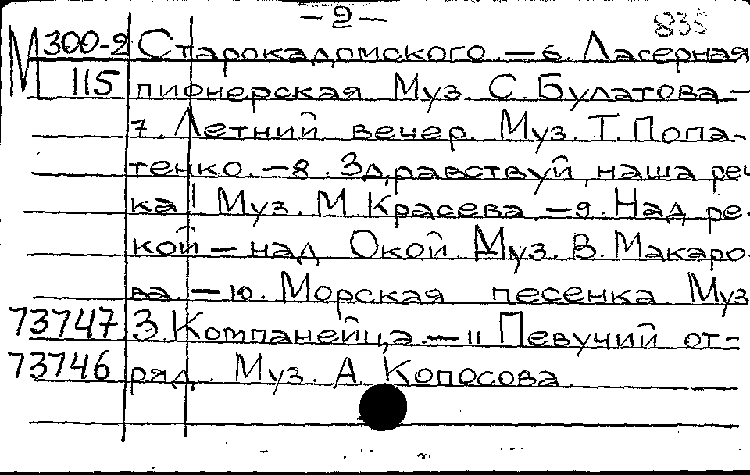 — 2 —
835
М 300-2 Старокадомского. — 6. Лагерная
115 пионерская Муз. С. Булатова —
7. Летний вечер. Муз. Т. Попа-
тенко. — 8. Здравствуй, наша реч
ка! Муз. М. Красева — 9. Над ре-
кой — над Окой Муз. В. Макаро-
ва. — 10. Морская песенка Муз
73747 З. Компанейца. — 11 Певучий от-
73746 ряд. Муз. А. Копосова